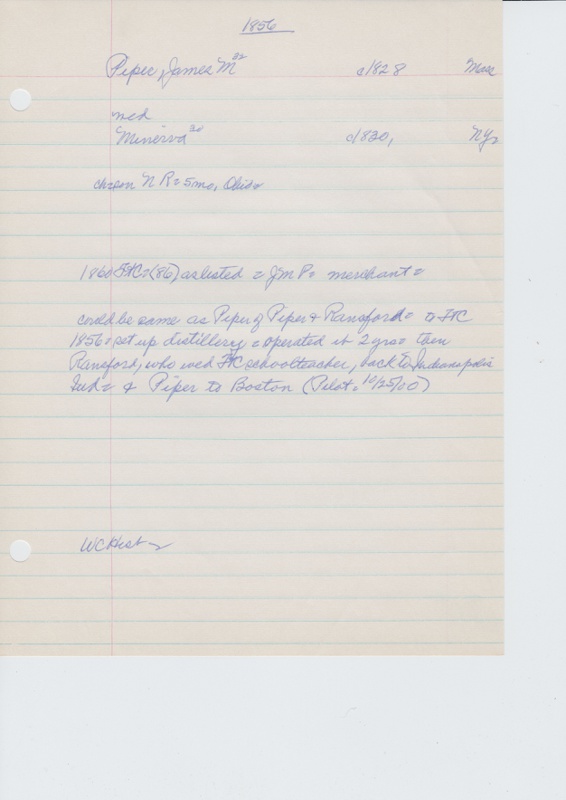 1856
Piper, James M 32 c1828 Mass
wed
Minerva 30 c1830, NY
chson N R = 5mo, Ohio
1860 FtC = (86) as listed = J M P = merchant =
could be same as Piper of Piper & Ransford = to FtC
1856 = set up distillery = operated it 2 yrs = then
Ransford, who wed FtC schoolteacher, back to Indianapolis
Ind = & Piper to Boston (Pilot = 10/25/00)
WCHist